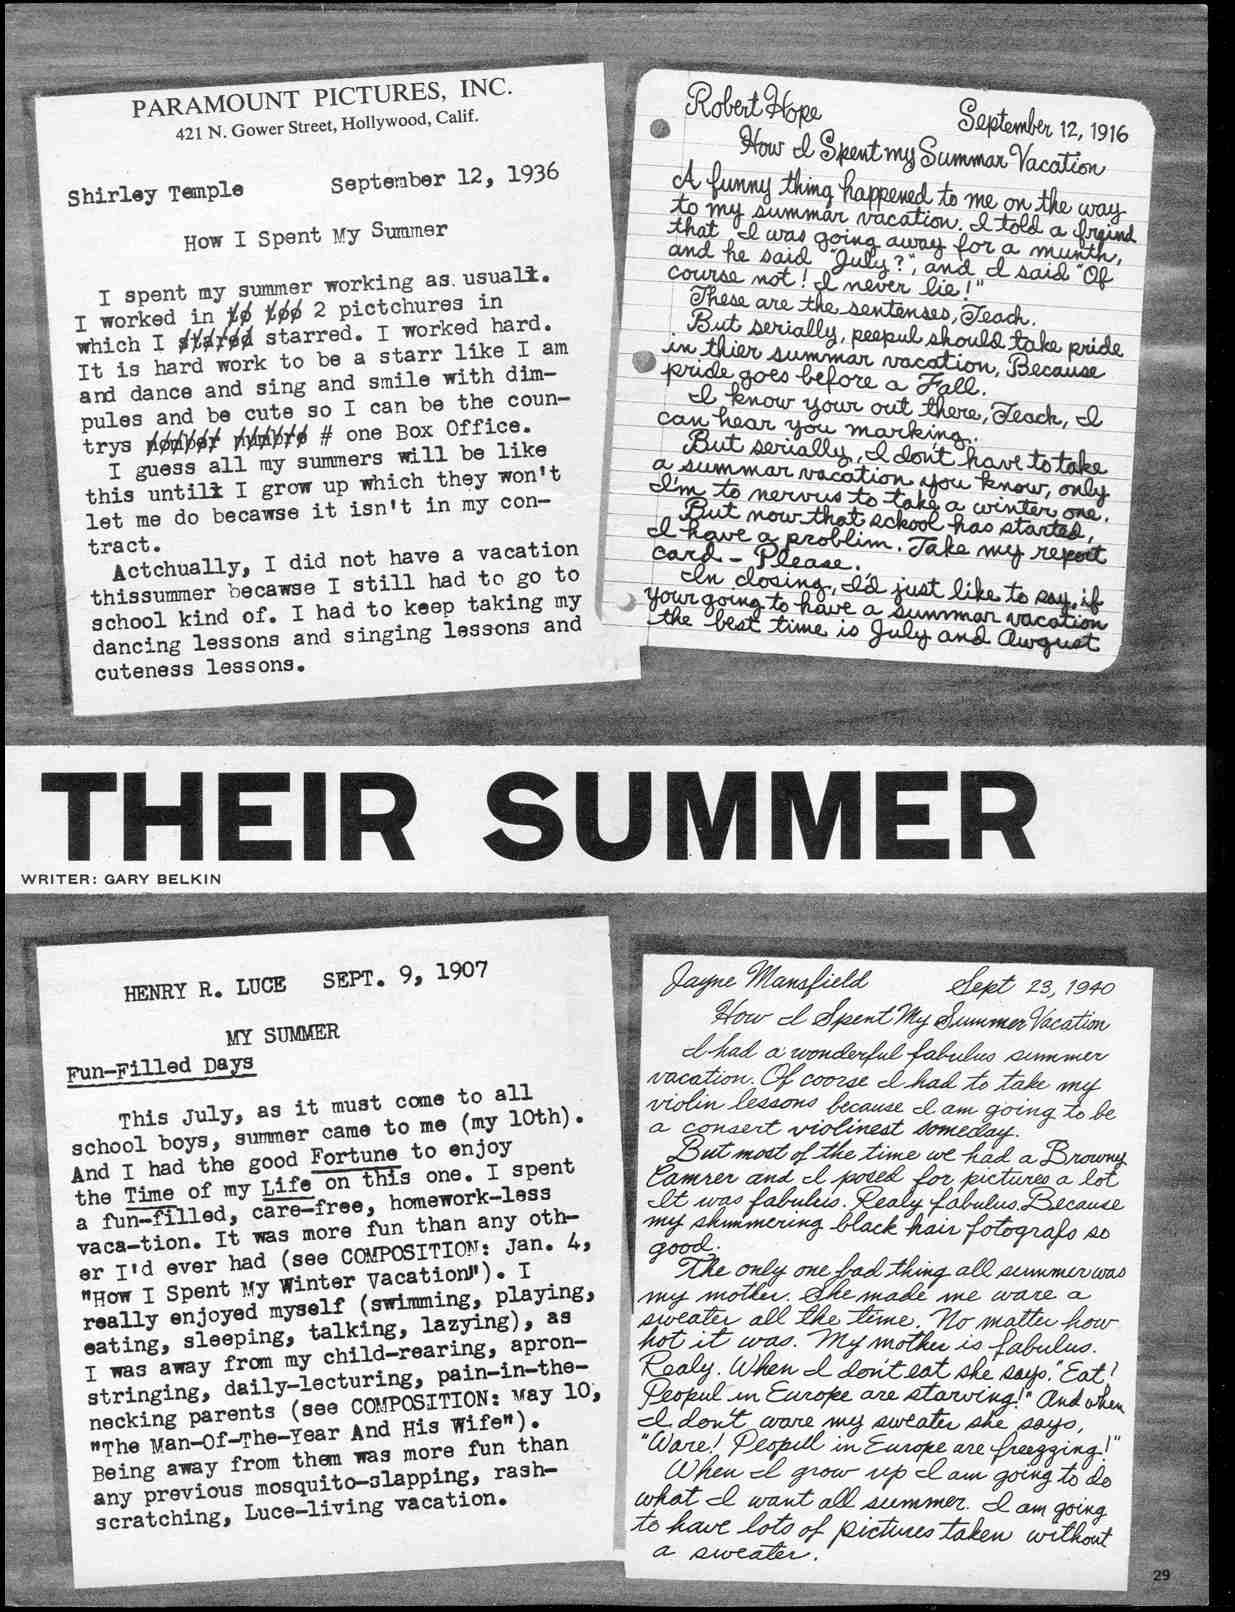 PARAMOUNT PICTURES, INC.
421 N. Gower Street, Hollywood, Calif.
Shirley Temple September 12, 1936
How I Spent My Summer
I spent my summer working as usual.
I worked in 2 pictchures in
which I stared starred. I worked hard.
It is hard work to be a starr like I am
and dance and sing and smile with dim-
pules and be cute so I can be the coun-
trys # one Box Office.
I guess all my summers will be like
this until I grow up which they won't
let me do becawse it isn't in my con-
tract.
Actchually, I did not have a vacation
thissummer becawse I still had to go to
school kind of. I had to keep taking my
dancing lessons and singing lessons and
cuteness lessons.
Robert Hope September 12, 1916
How I Spent my Summar Vacation
A funny thing happened to me on the way
to my summar vacation. I told a freind
that I was going away for a munth,
and he said "July?", and I said "Of
course not! I never lie!"
These are the sentenses, Teach.
But serially, peepul should take pride
in thier summar vacation, Because
pride goes before a Fall.
I know your out there, Teach, I
can hear you marking.
But serially, I don't have to take
a summar vacation you know, only
I'm to nervus to take a winter one.
But now that school has started,
I have a problim. Take my report
card - Please.
In closing, I'd just like to say, if
your going to have a summar vacation
the best time is July and Awgust
THEIR SUMMER
WRITER: GARY BELKIN
HENRY R. LUCE SEPT. 9, 1907
MY SUMMER
Fun-Filled Days
This July, as it must come to all
school boys, summer came to me (my 10th).
And I had the good Fortune to enjoy
the Time of my Life on this one. I spent
a fun-filled, care-free, homework-less
vaca-tion. It was more fun than any oth-
er I'd ever had (see COMPOSITION: Jan. 4,
"How I Spent My Winter Vacation"). I
really enjoyed myself (swimming, playing,
eating, sleeping, talking, lazying), as
I was away from my child-rearing, apron-
stringing, daily-lecturing, pain-in-the-
necking parents (see COMPOSITION: May 10,
"The Man-Of-The-Year And His Wife").
Being away from them was more fun than
any previous mosquito-slapping, rash-
scratching, Luce-living vacation.
Jayne Mansfield Sept 23, 1940
How I Spent My Summer Vacation
I had a wonderful fabulus summer
vacation. Of coorse I had to take my
violin lessons because I am going to be
a consert violinest someday.
But most of the time we had a Browny
Camrer and I posed for pictures a lot
It was fabulus. Realy fabulus. Because
my shimmering black hair fotografs so
good.
The only one bad thing all summer was
my mother. She made me ware a
sweater all the time. No matter how
hot it was. My mother is fabulus.
Realy. When I don't eat she says, "Eat!
Peopul in Europe are starving!" And when
I don't ware my sweater she says,
"Ware! Peopull in Europe are freezzing!"
When I grow up I am going to do
what I want all summer. I am going
to have lots of pictures taken without
a sweater.
29